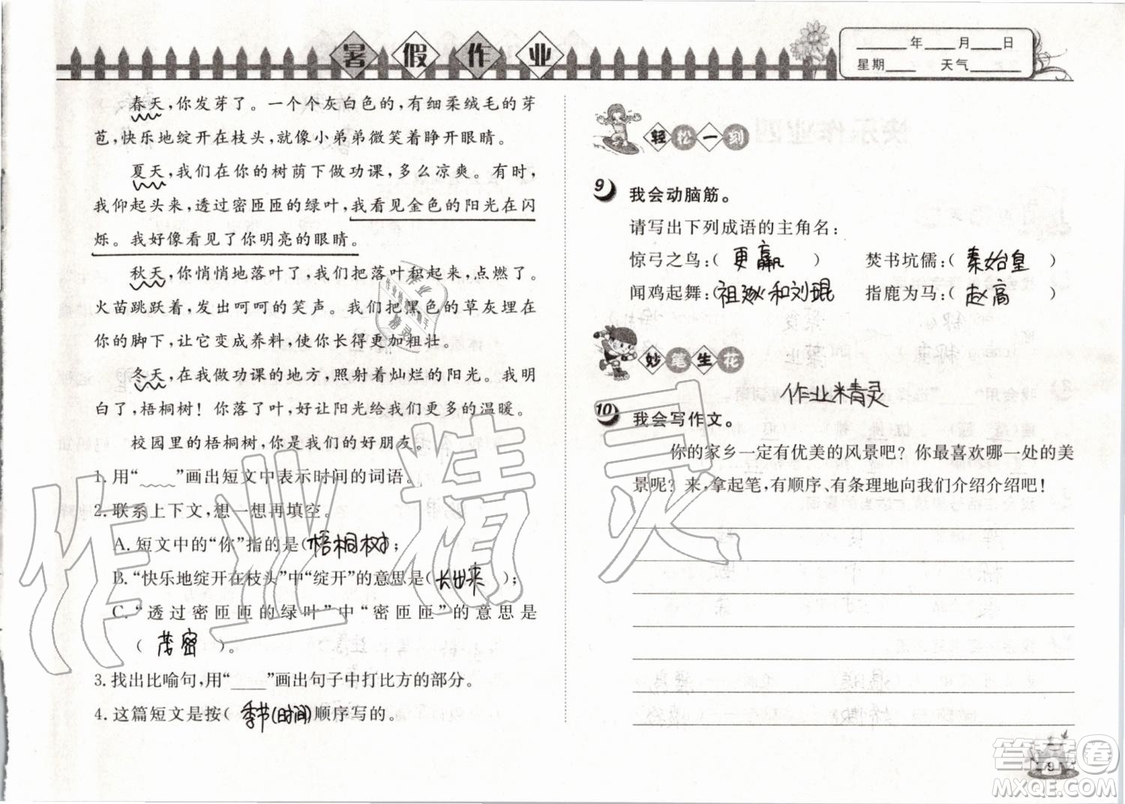 暑假作业
____年____月____日
星期____ 天气____
春天，你发芽了。一个个灰白色的，有细柔绒毛的芽
苞，快乐地绽开在枝头，就像小弟弟微笑着睁开眼睛。
夏天，我们在你的树荫下做功课，多么凉爽。有时，
我仰起头来，透过密匝匝的绿叶，我看见金色的阳光在闪
烁。我好像看见了你明亮的眼睛。
秋天，你悄悄地落叶了，我们把落叶扫起来，点燃了。
火苗跳跃着，发出呵呵的笑声。我们把黑色的草灰埋在
你的脚下，让它变成养料，使你长得更加粗壮。
冬天，在我做功课的地方，照射着灿烂的阳光。我明
白了，梧桐树！你落了叶，好让阳光给我们更多的温暖。
校园里的梧桐树，我们的好朋友。
1. 用“﹏﹏”画出短文中表示时间的词语。
2. 联系上下文，想一想再填空。
A. 短文中的“你”指的是（梧桐树）；
B. “快乐地绽开在枝头”中“绽开”的意思是（长出来）；
C. “透过密匝匝的绿叶”中“密匝匝”的意思是
（茂密）。
3. 找出比喻句，用“____”画出句子中打比方的部分。
4. 这篇短文是按（季节(时间)）顺序写的。
轻松一刻
9 我会动脑筋。
请写出下列成语的主角名：
惊弓之鸟：（更羸） 焚书坑儒：（秦始皇）
闻鸡起舞：（祖逖和刘琨） 指鹿为马：（赵高）
妙笔生花
作业精灵
10 我会写作文。
你的家乡一定有优美的风景吧？你最喜欢哪一处的美
景呢？来，拿起笔，有顺序、有条理地向我们介绍介绍吧！
作业精灵
9
答案圈
MXQE.COM